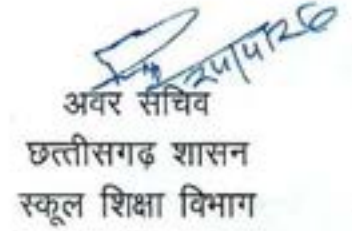 २५/४/२६
अवर सचिव
छत्तीसगढ़ शासन
स्कूल शिक्षा विभाग